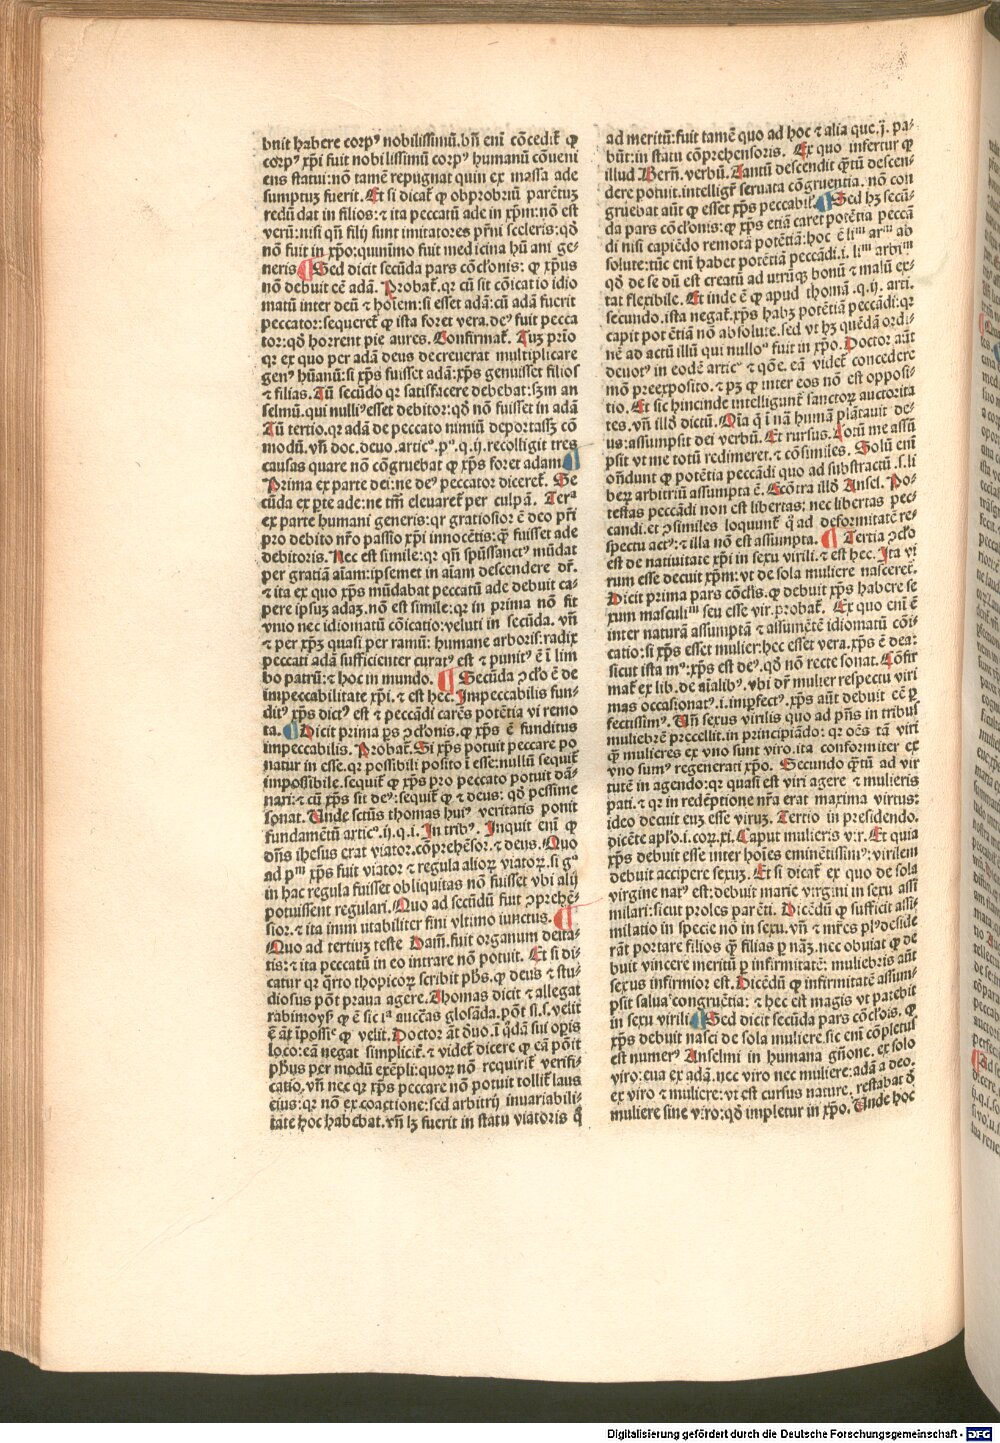 buit habere corpꝰ nobilissimū.bn̄ enī cōcediꝉ ꝙ
corpꝰ xp̄i fuit nobilissimū corpꝰ humanū cōueni
ens statui:nō tamē repugnat quin ex massa ade
sumptuꝫ fuerit. Et si dicaꝉ ꝙ obprobriū parētuꝫ
redūdat in filios:⁊ ita peccatū ade in xp̄m:nō est
verū:nisi qn̄ filij sunt imitatores pr̄ni sceleris:qd̄
nō fuit in xp̄o:quinimo fuit medicina hūani ge-
neris ¶ Sed dicit secūda pars cōcl̄onis: ꝙ xp̄us
nō debuit eē adā. Probaꝉ.qꝛ cū sit cōicatio idio
matū inter deū ⁊ hoīem:si esset adā:cū adā fuerit
peccator:sequereꝉ ꝙ ista foret vera.deꝰ fuit pecca
tor:qd̄ horrent pie aures. Confirmaꝉ. Tuꝫ prīo
qꝛ ex quo per adā deus decreuerat multiplicare
genꝰ hūanū:si xp̄s fuisset adā:xp̄s genuisset filios
⁊ filias. Tū secūdo qꝛ satisfacere debebat:sꝫm an
selmū.qui nulliꝰ esset debitor:qd̄ nō fuisset in adā
Tū tertio.qꝛ adā de peccato nimiū deportassꝫ cō
modū.vn̄ doc.deuo.articᵒ.pᵒ.q.ij.recolligit tres
causas quare nō cōgruebat ꝙ xp̄s foret adam ¶
Prima ex parte dei:ne deꝰ peccator dicereꝉ. Se
cūda ex p̄te ade:ne tm̄ eleuareꝉ per culpā. Terᵃ
ex parte humani generis:qꝛ gratiosior ē deo pr̄i
pro debito nr̄o passio xp̄i innocētis:ꝙ̄ fuisset ade
debitoris. Nec est simile:qꝛ qn̄ sp̄ussanctꝰ mūdat
per gratiā aīam:ipsemet in aīam descendere dr̄.
⁊ ita ex quo xp̄s mūdabat peccatū ade debuit ca-
pere ipsuꝫ adaꝫ.nō est simile:qꝛ in prima nō fit
vnio nec idiomatū cōicatio:veluti in secūda. vn̄
⁊ per xp̄ꝫ quasi per ramū: humane arboris:radix
peccati adā sufficienter curatꝰ est ⁊ punitꝰ ē ī lim
bo patrū:⁊ hoc in mundo. ¶ Secūda ꝯcl̄o ē de
impeccabilitate xp̄i.⁊ est hec. Impeccabilis fun-
ditꝰ xp̄s dictꝰ est ⁊ peccādi carēs potētia vi remo
ta. ¶ Dicit prima p̄s ꝯcl̄onis.ꝙ xp̄s ē funditus
impeccabilis. Probaꝉ. Si xp̄s potuit peccare po
natur in esse.qꝛ possibili posito ī esse:nullū sequiꝉ
impossibile.sequiꝉ ꝙ xp̄s pro peccato potuit dā-
nari:⁊ cū xp̄s sit deꝰ:sequiꝉ ꝙ ⁊ deus: qd̄ pessime
sonat. Unde sctūs thomas huiꝰ veritatis ponit
fundamētū articᵒ.ij.q.i. In tribꝰ. Inquit enī ꝙ
dn̄s ihesus erat viator.cōprehēsor.⁊ deus. Quo
ad pᵐ xp̄s fuit viator ⁊ regula alioꝝ viatoꝝ.si gᵒ
in hac regula fuisset obliquitas nō fuisset vbi alij
potuissent regulari. Quo ad secūdū fuit ꝯprehē-
sior.⁊ ita immutabiliter fini vltimo iunctus. ¶
Quo ad tertiuꝫ teste Dam̄.fuit organum deita-
tis:⁊ ita peccatū in eo intrare nō potuit. Et si di-
catur qꝛ q̄rto thopicoꝝ scribit ph̄s.ꝙ deus ⁊ stu-
diosus pōt praua agere. Thomas dicit ⁊ allegat
rabimoysē ꝙ ē sic iᵃ auccās glosāda.pōt si.s.velit
ē aūt īpossiᵉ ꝙ velit. Doctor aūt d̄uo.ī q̄dā sui opis
loco:eā negat simpliciꝉ.⁊ videꝉ dicere ꝙ eā pōit
ph̄us per modū exēpli:quoꝝ nō requiriꝉ verifi-
catio.vn̄ nec qꝛ xp̄s peccare nō potuit tolliꝉ laus
eius:qꝛ nō ex coactione:sed arbitrij inuariabili-
tate hoc habebat.vn̄ lꝫ fuerit in statu viatoris q̄
ad meritū:fuit tamē quo ad hoc ⁊ alia que.ij.pa-
būt:in statu cōprehensoris. Ex quo infertur ꝙ
illud Bern̄.verbū. Tantū descendit q̄tū descen-
dere potuit.intelligiꝉ seruata cōgruentia. nō con
gruebat aūt ꝙ esset xp̄s peccabil̓. ¶ Sed hꝫ secū-
da pars cōcl̄onis:ꝙ xp̄s etiā caret potētia peccā
di nisi capiēdo remotā potētiā:hoc ē liᵐ arᵐ ab
solute:tūc enī habet potētiā peccādi.i.liᵐ arbiᵐ
qd̄ de se dū est creatū ad utrūqꝫ bonū ⁊ malū ex-
tat flexibile. Et inde ē ꝙ apud thomā.q.ij.arti.
secundo.ista negaꝉ.xp̄s habꝫ potētiā peccādi:qꝛ
capit potētiā nō absolute.sed vt hꝫ quēdā ordi-
nē ad actū illū qui nulloᵒ fuit in xp̄o. Doctor aūt
deuotꝰ in eodē articᵒ ⁊ qōe.eā videꝉ concedere
mō preexposito.⁊ pꝫ ꝙ inter eos nō est oppositi-
tio. Et sic hincinde intelligunꝉ sanctoꝝ auctorita
tes.vn̄ illd̄ dictū. Oīa q̄ ī nā humā plātauit de-
us:assumpsit dei verbū. Et rursus. Totū me assū
psit vt me totū redimeret.⁊ cōsimiles. Solū enī
on̄dunt ꝙ potētia peccādi quo ad substractū.s.li
beꝝ arbitriū assumpta ē. Ecōtra illd̄ Ansel. Po-
testas peccādi non est libertas: nec libertas pec-
candi.et ꝯsimiles loquunꝉ q̄ ad deformitatē re-
spectu actꝰ:⁊ illa nō est assumpta. ¶ Tertia ꝯcl̄o
est de natiuitate xp̄i in sexu virili.⁊ est hec. Ita vi
rum esse decuit xp̄m:vt de sola muliere nasceretꝉ.
Dicit prima pars cōcl̄is.ꝙ debuit xp̄s habere se
xum masculiᵐ seu esse vir.probaꝉ. Ex quo enī ē
inter naturā assumptā ⁊ assumētē idiomatū cōi-
catio:si xp̄s esset mulier:hec esset vera.xp̄s ē dea:
sicut ista mᵒ:xp̄s est deꝰ.qd̄ nō recte sonat. Cōfir
maꝉ ex lib.de aīalibꝰ.vbi dr̄ mulier respectu viri
mas occasionatꝰ.i.imp̄fectꝰ.xp̄s aūt debuit eē ꝑ
fectissimꝰ. Un̄ sexus virilis quo ad pn̄s in tribus
muliebrē precellit.in principiādo: qꝛ oēs tā viri
ꝙ̄ mulieres ex vno sunt viro.ita conformiter ex
vno sumꝰ regenerati xp̄o. Secundo q̄tū ad vir
tutē in agendo:qꝛ quasi est viri agere ⁊ mulieris
pati.⁊ qꝛ in redēptione nr̄a erat maxima virtus:
ideo decuit euꝫ esse viruꝫ. Tertio in presidendo.
dicēte apl̄o.i.coꝝ.xi. Caput mulieris v:r. Et quia
xp̄s debuit esse inter hoīes eminētissimꝰ:virilem
debuit accipere sexuꝫ. Et si dicaꝉ ex quo de sola
virgine natꝰ est:debuit marie virgini in sexu assi
milari:sicut proles parēti. Dicēdū ꝙ sufficit assi-
milatio in specie nō in sexu.vn̄ ⁊ mr̄es plꝰ deside
rāt portare filios ꝙ̄ filias ꝑ nāꝫ.nec obuiat ꝙ de
buit vincere meritū ꝑ infirmitatē: muliebris aūt
sexus infirmior est. Dicēdū ꝙ infirmitatē assum-
psit salua congruētia: ⁊ hec est magis vt patebit
in sexu virili ¶ Sed dicit secūda pars cōcl̄ois. ꝙ
xp̄s debuit nasci de sola muliere.sic enī cōpletus
est numerꝰ Anselmi in humana gn̄one.ex solo
viro:eua ex adā.nec viro nec muliere:adā a deo.
ex viro ⁊ muliere:vt est cursus nature. restabat d̄
muliere sine viro:qd̄ impletur in xp̄o. Unde hoc
Digitalisierung gefördert durch die Deutsche Forschungsgemeinschaft - DFG